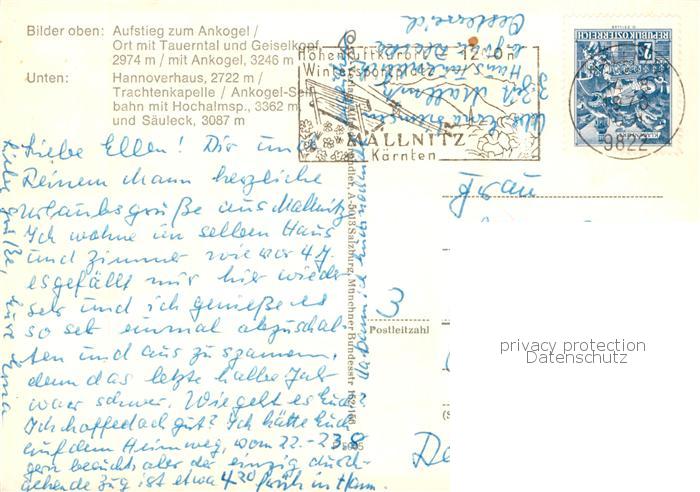 Bilder oben: Aufstieg zum Ankogel /
Ort mit Tauerntal und Geiselkopf,
2974 m / mit Ankogel, 3246 m
Unten: Hannoverhaus, 2722 m /
Trachtenkapelle / Ankogel-Seil-
bahn mit Hochalmsp., 3362 m
und Säuleck, 3087 m
Höhenluftkurort
Wintersportplatz
MALLNITZ
Kärnten
REPUBLIK ÖSTERREICH
9822
Liebe Ellen! Dir und
Deinem Mann herzliche
Urlaubsgrüße aus Mallnitz
Ich wohne im selben Haus
und Zimmer wie vor 4 J.
es gefällt mir hier wieder
sehr und ich genieße es
so sehr einmal abzuschal-
ten und aus zu spannen,
denn das letzte halbe Jahr
war schwer. Wie geht es Euch
Ich hoffe doch gut? Ich hätte Euch
auf dem Heimweg, vom 22.-23.8
gern besucht aber der einzig durch-
gehende Zug ist etwa 4 20 früh in Hann.
Liebe Grüße, Eure Erna
Mallnitz
Oesterreich
A-5013 Salzburg, Münchner Bundesstr.
Frau
3
Postleitzahl
privacy protection
Datenschutz